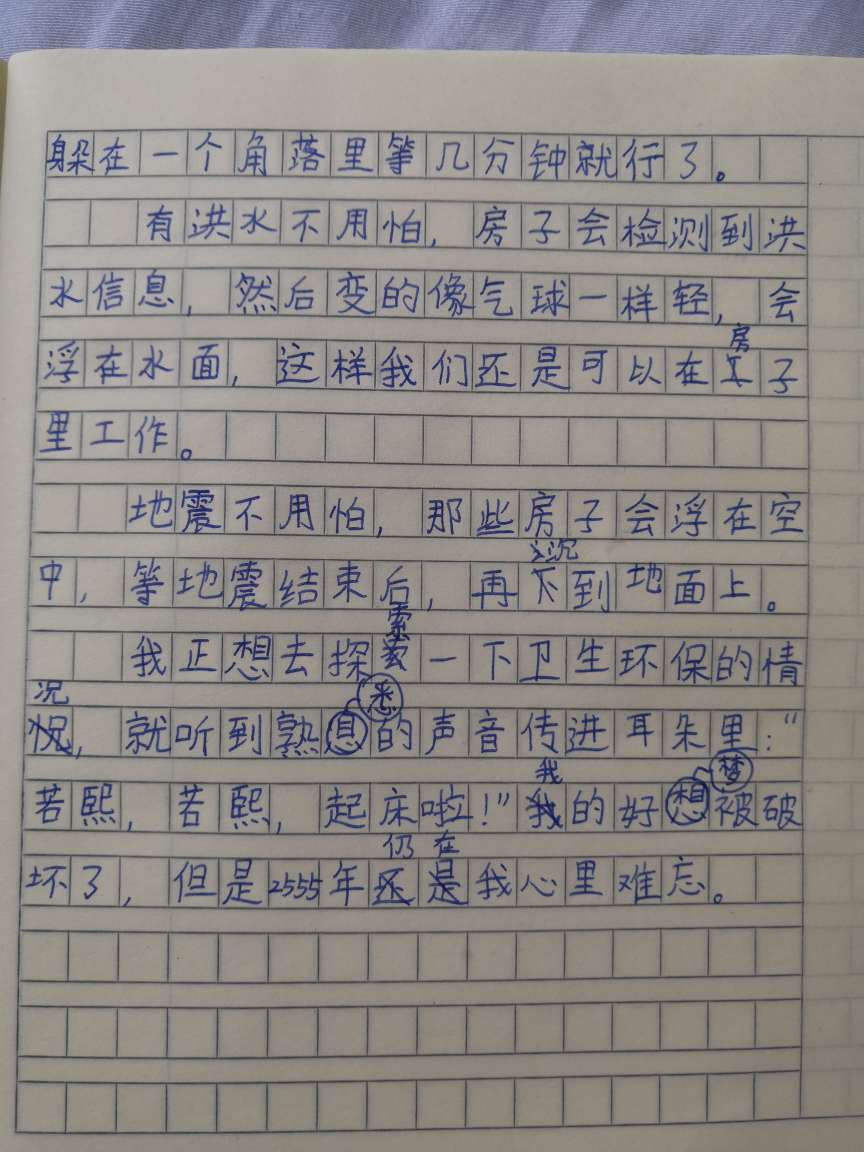 躲在一个角落里等几分钟就行了。
有洪水不用怕，房子会检测到洪
水信息，然后变的像气球一样轻，会
房
浮在水面，这样我们还是可以在子
里工作。
地震不用怕，那些房子会浮在空
沉
中，等地震结束后，再下到地面上。
索
我正想去探一下卫生环保的情
况 悉
，就听到熟息的声音传进耳朵里："
我 梦
若熙，若熙，起床啦！"我的好想被破
仍在
坏了，但是2555年还是我心里难忘。